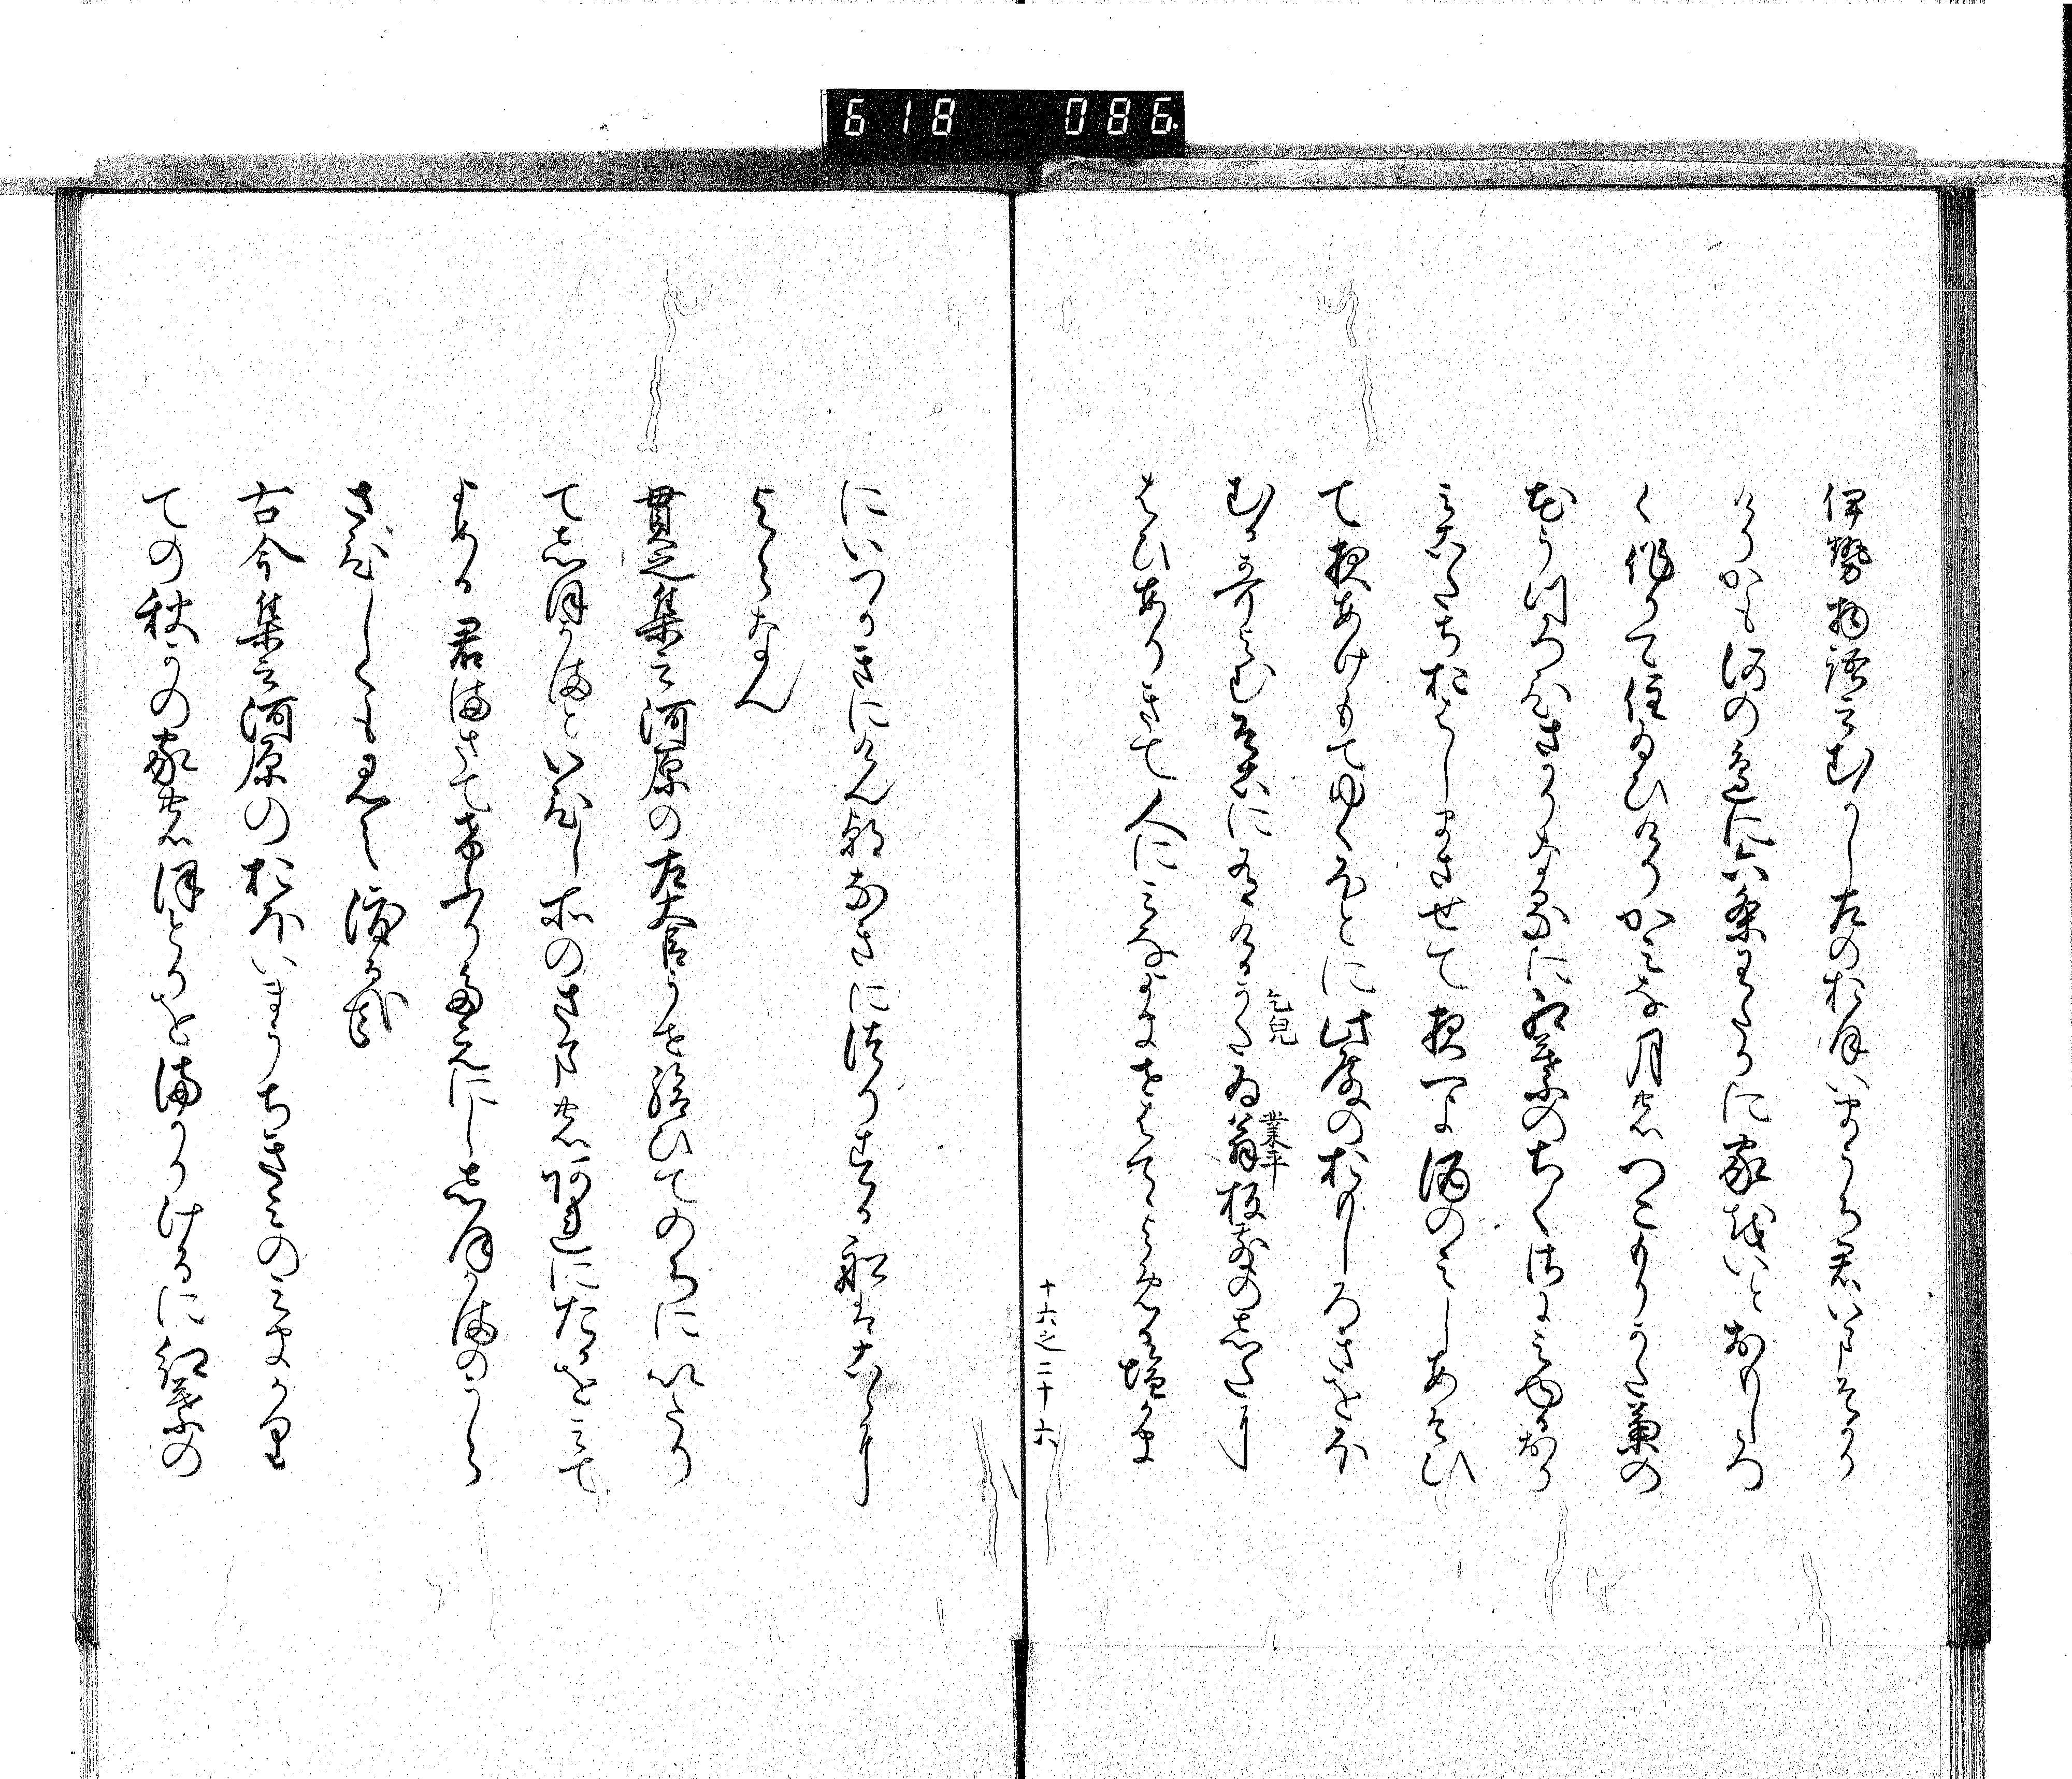 618 086
伊勢物語云むかし左のおほいまうち君いまそかり
けりかも河の邊に六条わたりに家をいとおもしろ
く作りて住給ひけりかみな月のつこもりかた菊の
花うつろひさかりなるに紅葉のちくさにみゆるおり
みこたちおはしまさせて夜一よ酒のみしあそひ
て夜あけもてゆくほとに此殿のおもしろきをほ
むる哥よむそこに有けるかたゐ翁板敷の下に
乞兒
業平
はひありきて人にみなよませはててよめる塩かま
十六之二十六
にいつかきにけん朝なきに釣する船はここに
よらなん
貫之集云河原の左大臣うせ給ひてのちにいたり
てしほかまといひし所のさまのあれにたるをみて
よめる 君まさて煙たえにししほかまのうら
さひしくも見え渡る哉
古今集云河原のおほいまうちきみのみまかり
ての秋かの家のほとりをまかりけるに紅葉の